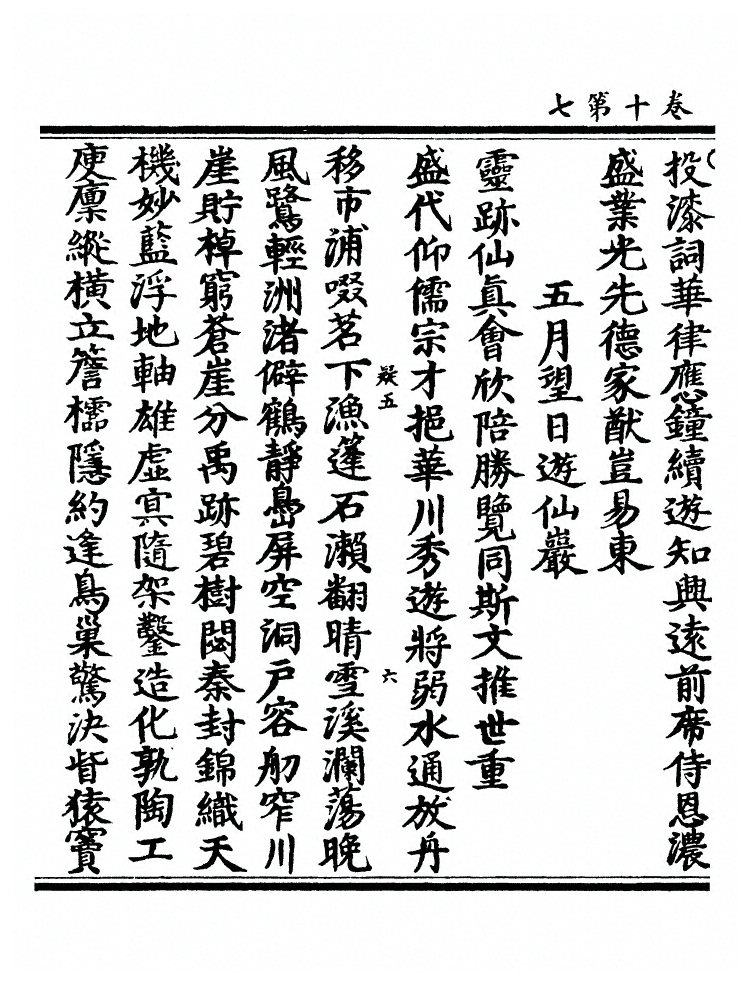 卷十第七
投漆詞華律應鐘續遊知興遠前席侍恩濃
盛業光先德家猷豈易東
五月望日遊仙巖
靈跡仙真會欣陪勝覽同斯文推世重
盛代仰儒宗才挹華川秀遊將弱水通放舟
疑五
六
移市浦啜茗下漁篷石瀨翻晴雪溪瀾蕩晚
風鷺輕洲渚僻鶴靜島屏空洞戶容舠窄川
崖貯棹窮蒼崖分禹跡碧樹閟秦封錦織天
機妙藍浮地軸雄虛寘隨架鑿造化孰陶工
庾廩縱橫立簷櫺隱約逢鳥巢驚決眥猿竇